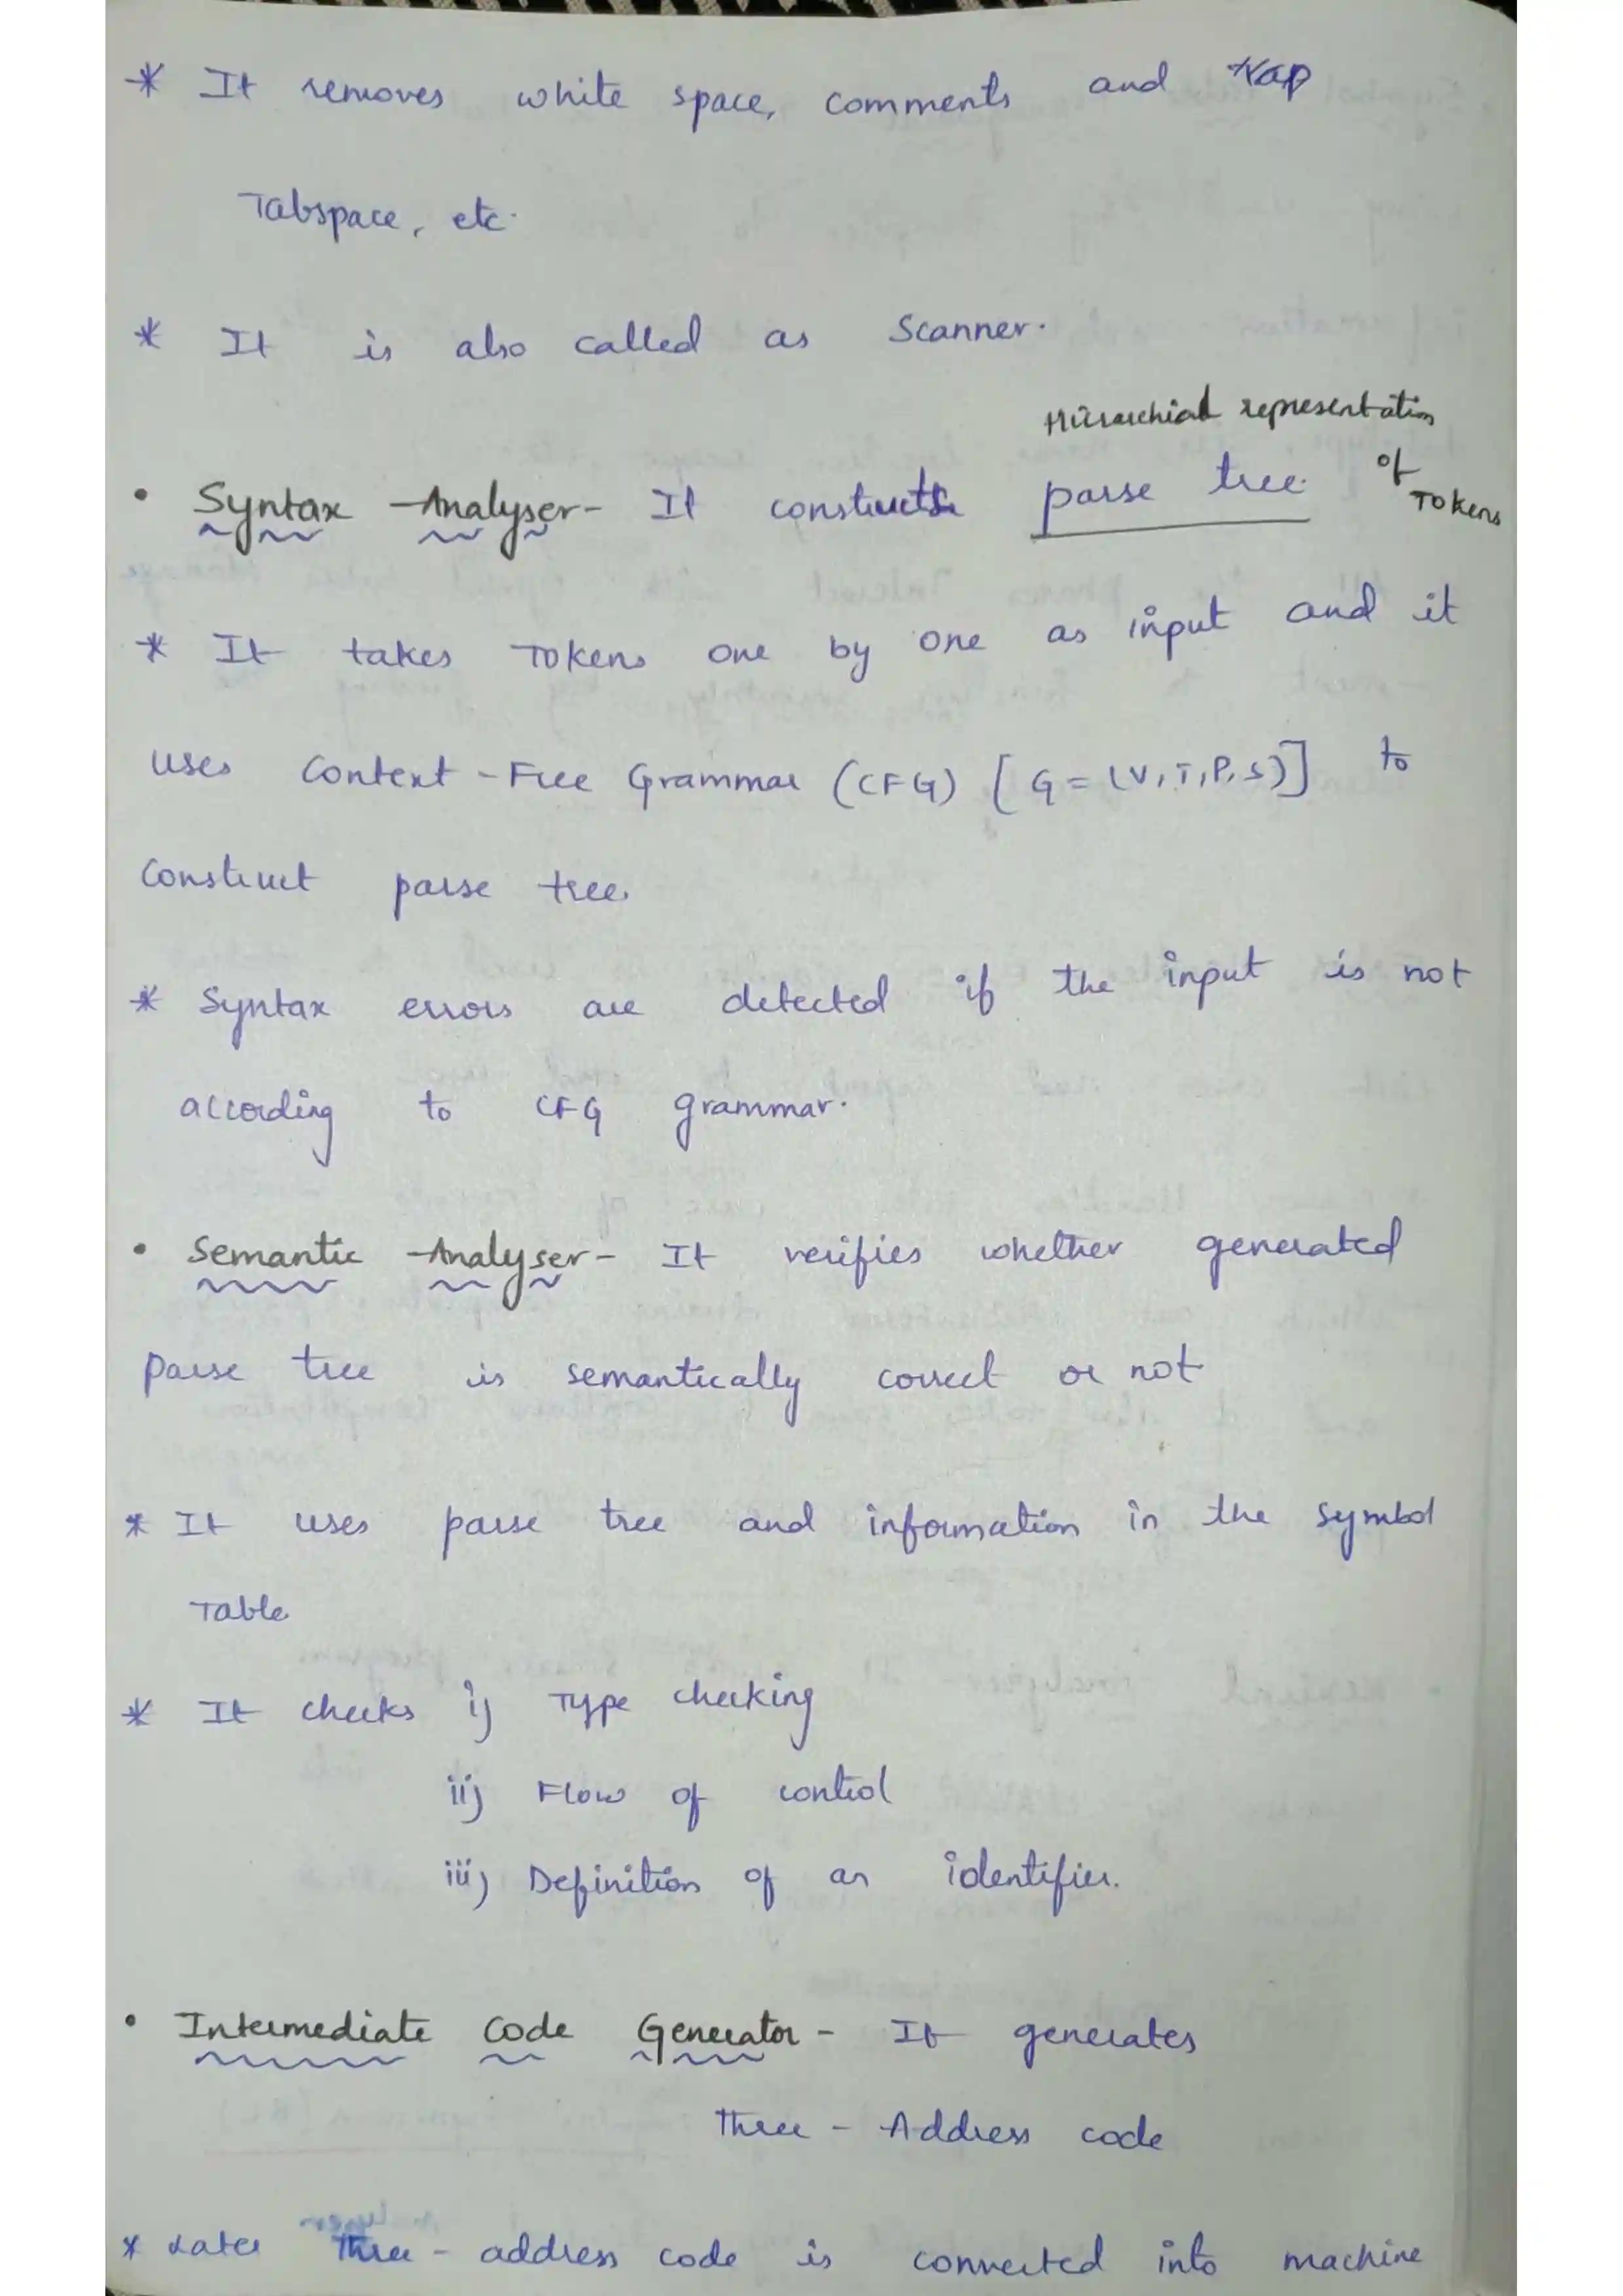 * It removes white space, comments and
Tabspace, etc.
* It is also called as Scanner.
Hierarchial representation
• Syntax Analyser - It constructs parse tree of
Tokens
* It takes Tokens one by one as input and it
uses Context-Free Grammar (CFG) [G = (V,T,P,S)] to
construct parse tree.
* Syntax errors are detected if the input is not
according to CFG grammar.
• Semantic Analyser - It verifies whether generated
parse tree is semantically correct or not
* It uses parse tree and information in the symbol
Table.
* It checks i) Type checking
ii) Flow of control
iii) Definition of an identifier.
• Intermediate Code Generator - It generates
Three - Address code
* Later Three - address code is converted into machine